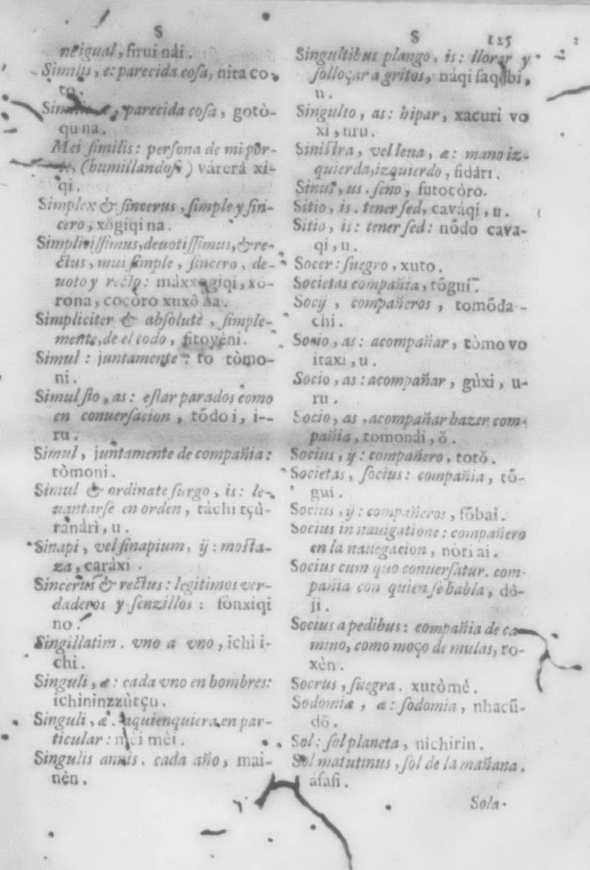 S
ne igual, firui nái.
Similis, e: parecida cosa, nita co-
to.
parecida cosa, gotò-
qui na.
Mei similis: persona de mi por-
te, (humillandose) várerá xi-
qi.
Simplex & sincerus, simple y sin-
cero, xõgiqi na.
Simplicissimus, deuotissimus, & re-
ctus, mui simple, sincero, de-
uoto y recto: máxxõgiqi, xo-
rona, cocòro xuxŏ na.
Simpliciter & absolutè, simple-
mente, de el todo, fitoyéni.
Simul: juntamente: to tòmo-
ni.
Simul sto, as: estar parados como
en conuersacion, tõdo i, i--
ru.
Simul, juntamente de compañia:
tòmoni.
Simul & ordinate surgo, is: le-
uantarse en orden, táchi tçù-
ranàri, u.
Sinapi, vel sinapium, ÿ: mosta-
za, caráxi.
Sincerus & rectus: legitimos ver-
daderos y senzillos: fonxiqi
no.
Singillatim. vno a vno, ichi i-
chi.
Singuli, æ: cada vno en hombres:
ichininzzútçu.
Singuli, æ. aquienquiera en par-
ticular: mei mèi.
Singulis annis. cada año, mai-
nèn.
S 125
Singultibus plango, is: llorar y
solloçar a gritos, náqi saqebi,
u.
Singulto, as: hipar, xacuri vo
xi, uru.
Sinistra, vel leua, æ: mano iz-
quierda, izquierdo, fidàri.
Sinus, us. seno, futocòro.
Sitio, is. tener sed, caváqi, u.
Sitio, is: tener sed: nõdo cava-
qi, u.
Socer: suegro, xuto.
Societas compañia, tõguí.
Socij, compañeros, tomõda-
chi.
Socio, as: acompañar, tòmo vo
itaxi, u.
Socio, as: acompañar, gúxi, u-
ru.
Socio, as, acompañar hazer com-
pañia, tomonái, ŏ.
Socius, ÿ: compañero, totŏ.
Societas, socius: compañia, tõ-
gui.
Socius, ÿ: compañeros, fõbai.
Socius in nauigatione: compañero
en la nauegacion, nori ai.
Socius cum quo conuersatur. com-
pañia con quien se habla, dò-
ji.
Socius a pedibus: compañia de ca-
mino, como moço de mulas, to-
xèn.
Socrus, suegra. xutòmè.
Sodomia, æ: sodomia, nhacũ-
dõ.
Sol: sol planeta, nichirin.
Sol matutinus, sol de la mañana.
ásafi.
Sola-